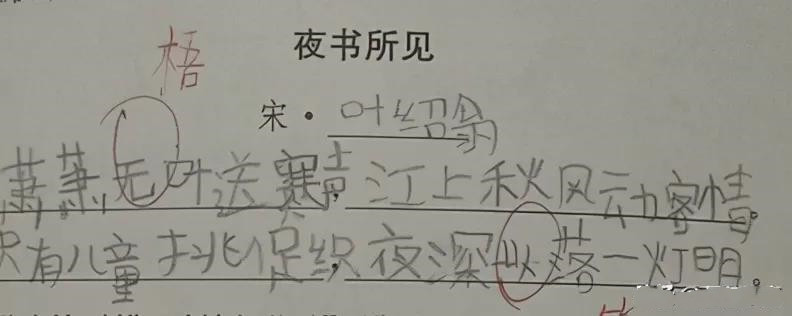 梧
夜书所见
宋·叶绍翁
萧萧无叶送赛声,江上秋风动客情。
有儿童挑促织,夜深以落一灯明。